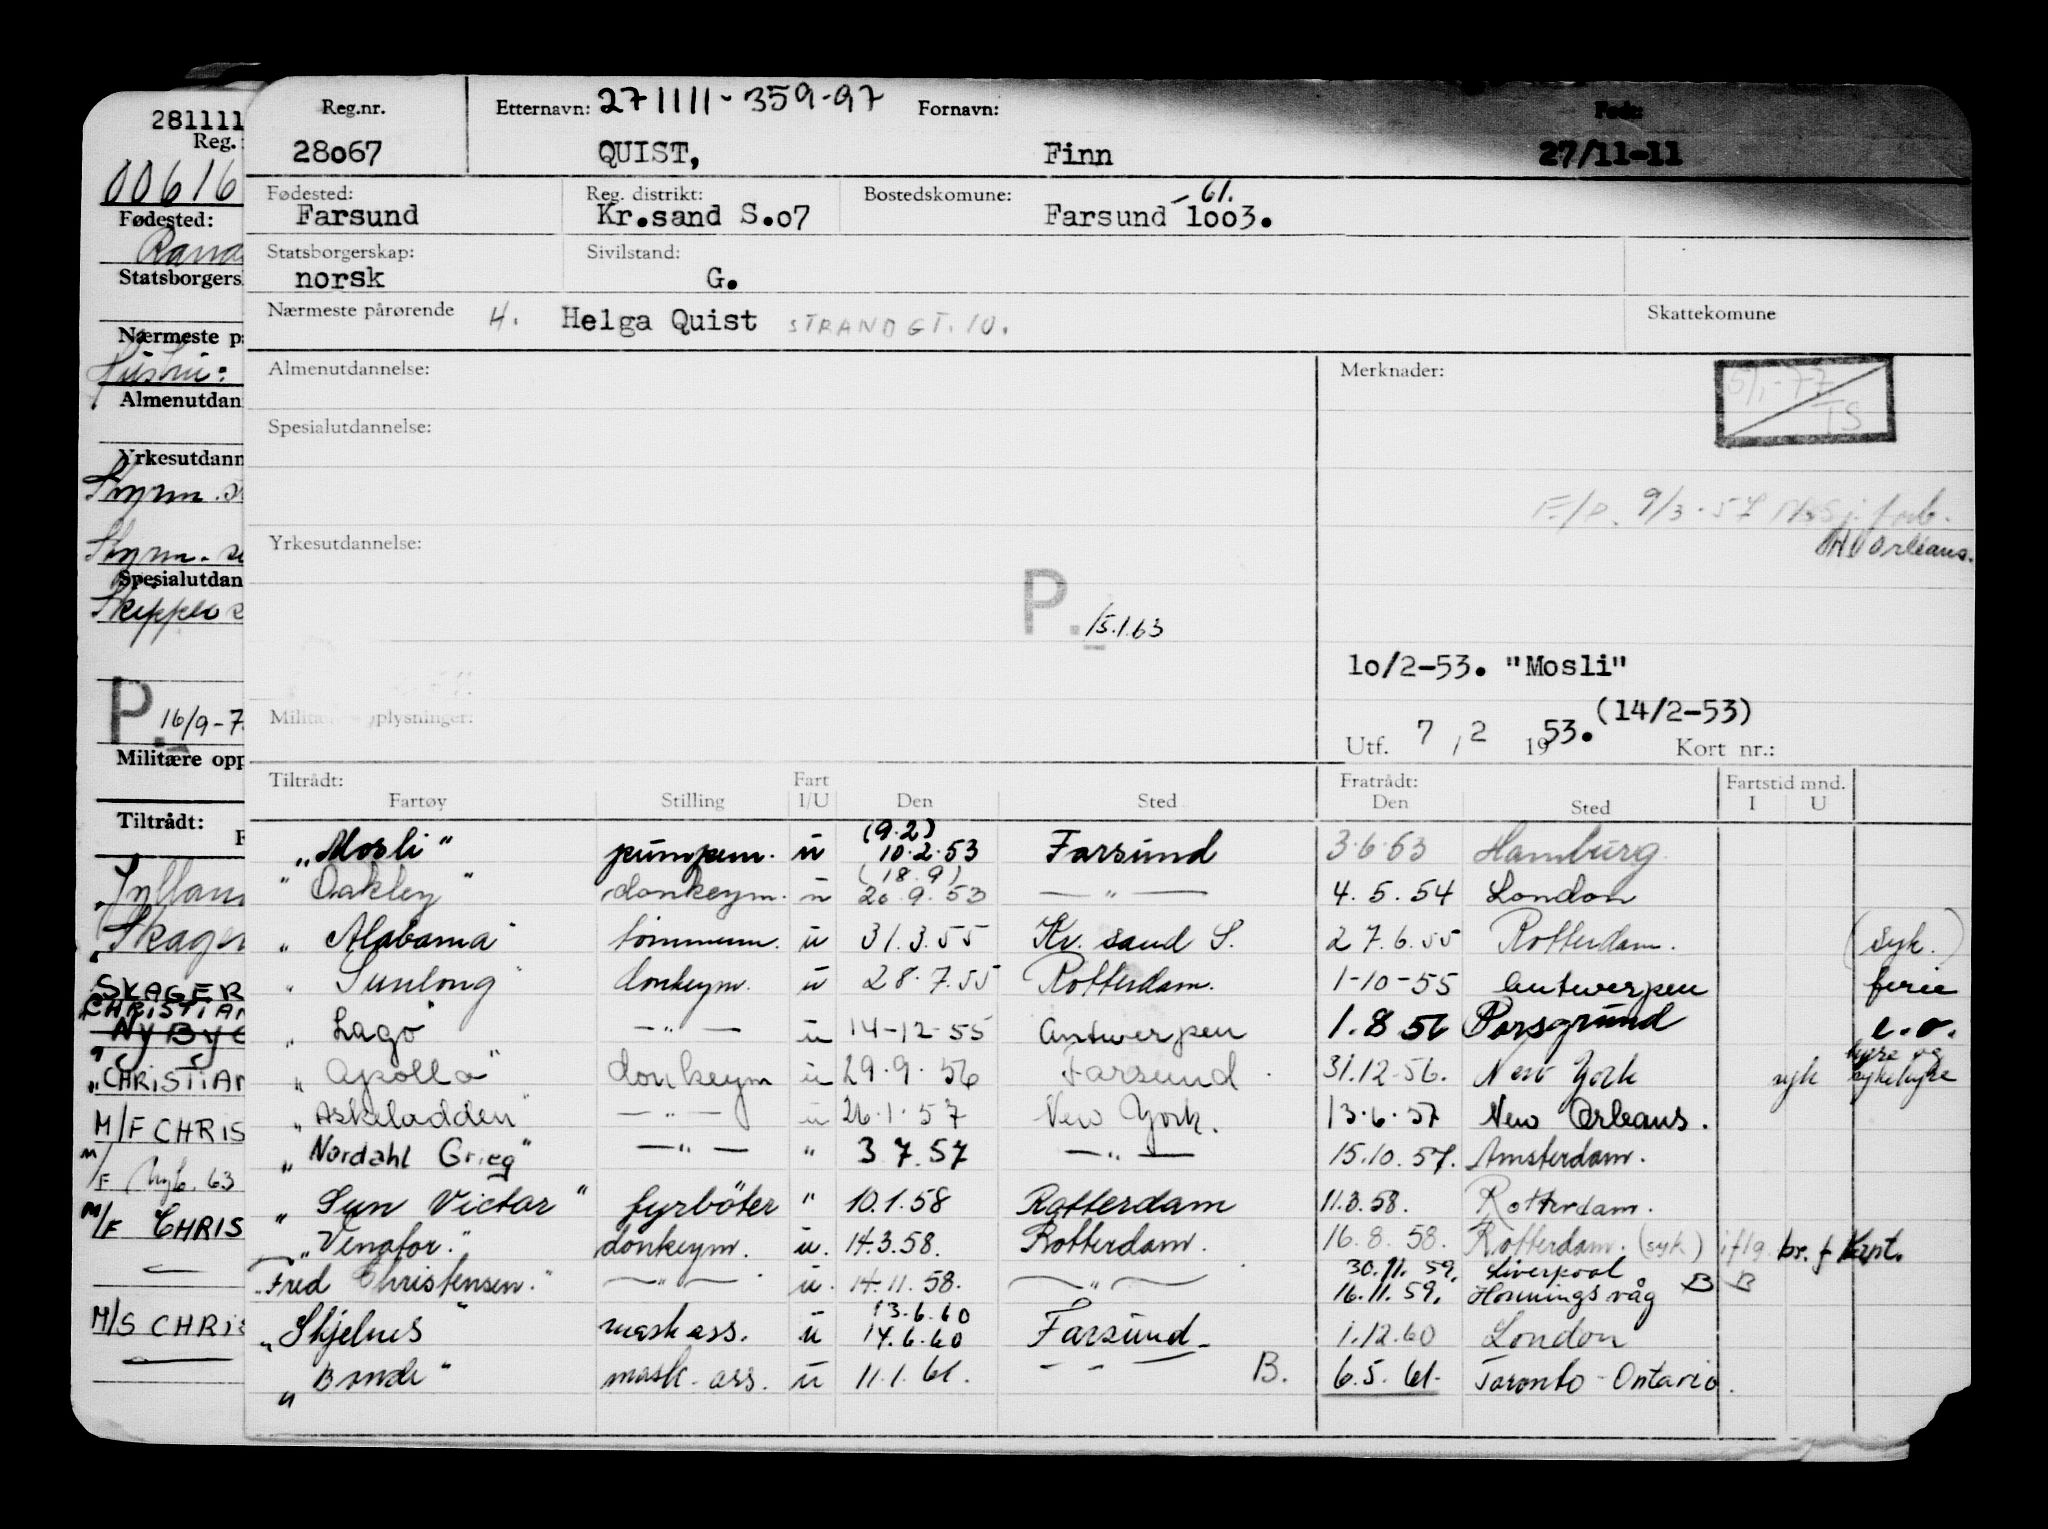 281111
Reg.
00616
Fødested:
Rana
Statsborgers
Nærmeste p
Hustru:
Almenutdan
Yrkesutdann
Styrm.
Styrm.
Spesialutdan
Skipper
P. 16/9-7
Militære opp
Tiltrådt:
F
Jyllan
"Skager
SKAGER
CHRISTIAN
"Ny By
"CHRISTIAN
M/F CHRIS
M/F Nyb. 63
M/F CHRIS
M/S CHRIS
Reg.nr. Etternavn: 271111-359-97 Fornavn: Født:
28067 QUIST, Finn 27/11-11
Fødested: Reg. distrikt: Bostedskomune: 61.
Farsund Kr.sand S.07 Farsund 1003.
Statsborgerskap: Sivilstand:
norsk G.
Nærmeste pårørende 4. Helga Quist STRANDGT. 10. Skattekomune
Almenutdannelse: Merknader:
5/1-77
TS
Spesialutdannelse:
F/P. 9/3-57
Orleans.
Yrkesutdannelse:
P. 15.1.63
10/2-53. "Mosli"
(14/2-53)
Utf. 7 / 2 1953. Kort nr.:
Tiltrådt: Fart Fratrådt: Fartstid mnd.
Fartøy Stilling I/U Den Sted Den Sted I U
"Mosli" pumpem. u (9.2) 10.2.53 Farsund 3.6.53 Hamburg.
"Oakley" donkeym. u (18.9) 20.9.53 — " — 4.5.54 London
"Alabama" tømmerm. u 31.3.55 Kr. sand S. 27.6.55 Rotterdam. (syk.)
"Sunlong" donkeym. u 28.7.55 Rotterdam. 1-10-55 Antwerpen ferie
"Lago" — " — u 14-12-55 Antwerpen 1.8 56 Porsgrund e.o.
"Apollo" donkeym u 29.9.56 Farsund 31.12-56. New York syk hyre og sykehyre
"Askeladden" — " — u 26.1.57 New York. 13.6.57 New Orleans.
"Nordahl Grieg" — " — " 3 7.57 — " — 15.10.57. Amsterdam.
"Sun Victor" fyrbøter " 10.1.58 Rotterdam 11.3.58. Rotterdam.
"Venator." donkeym. u. 14.3.58. Rotterdam. 16.8.58. Rotterdam. (syk) iflg. br. f Kapt.
"Fred Christensen." — " — u. 14.11.58. — " — 30.11.59. Liverpool
16.11.59. Honningsvåg B B
"Skjelnes" mask ass. u 13.6.60 14.6.60 Farsund 1.12.60 London
"Bonde" mask. ass. u 11.1.61. — " — B. 6.5.61. Toronto - Ontario.